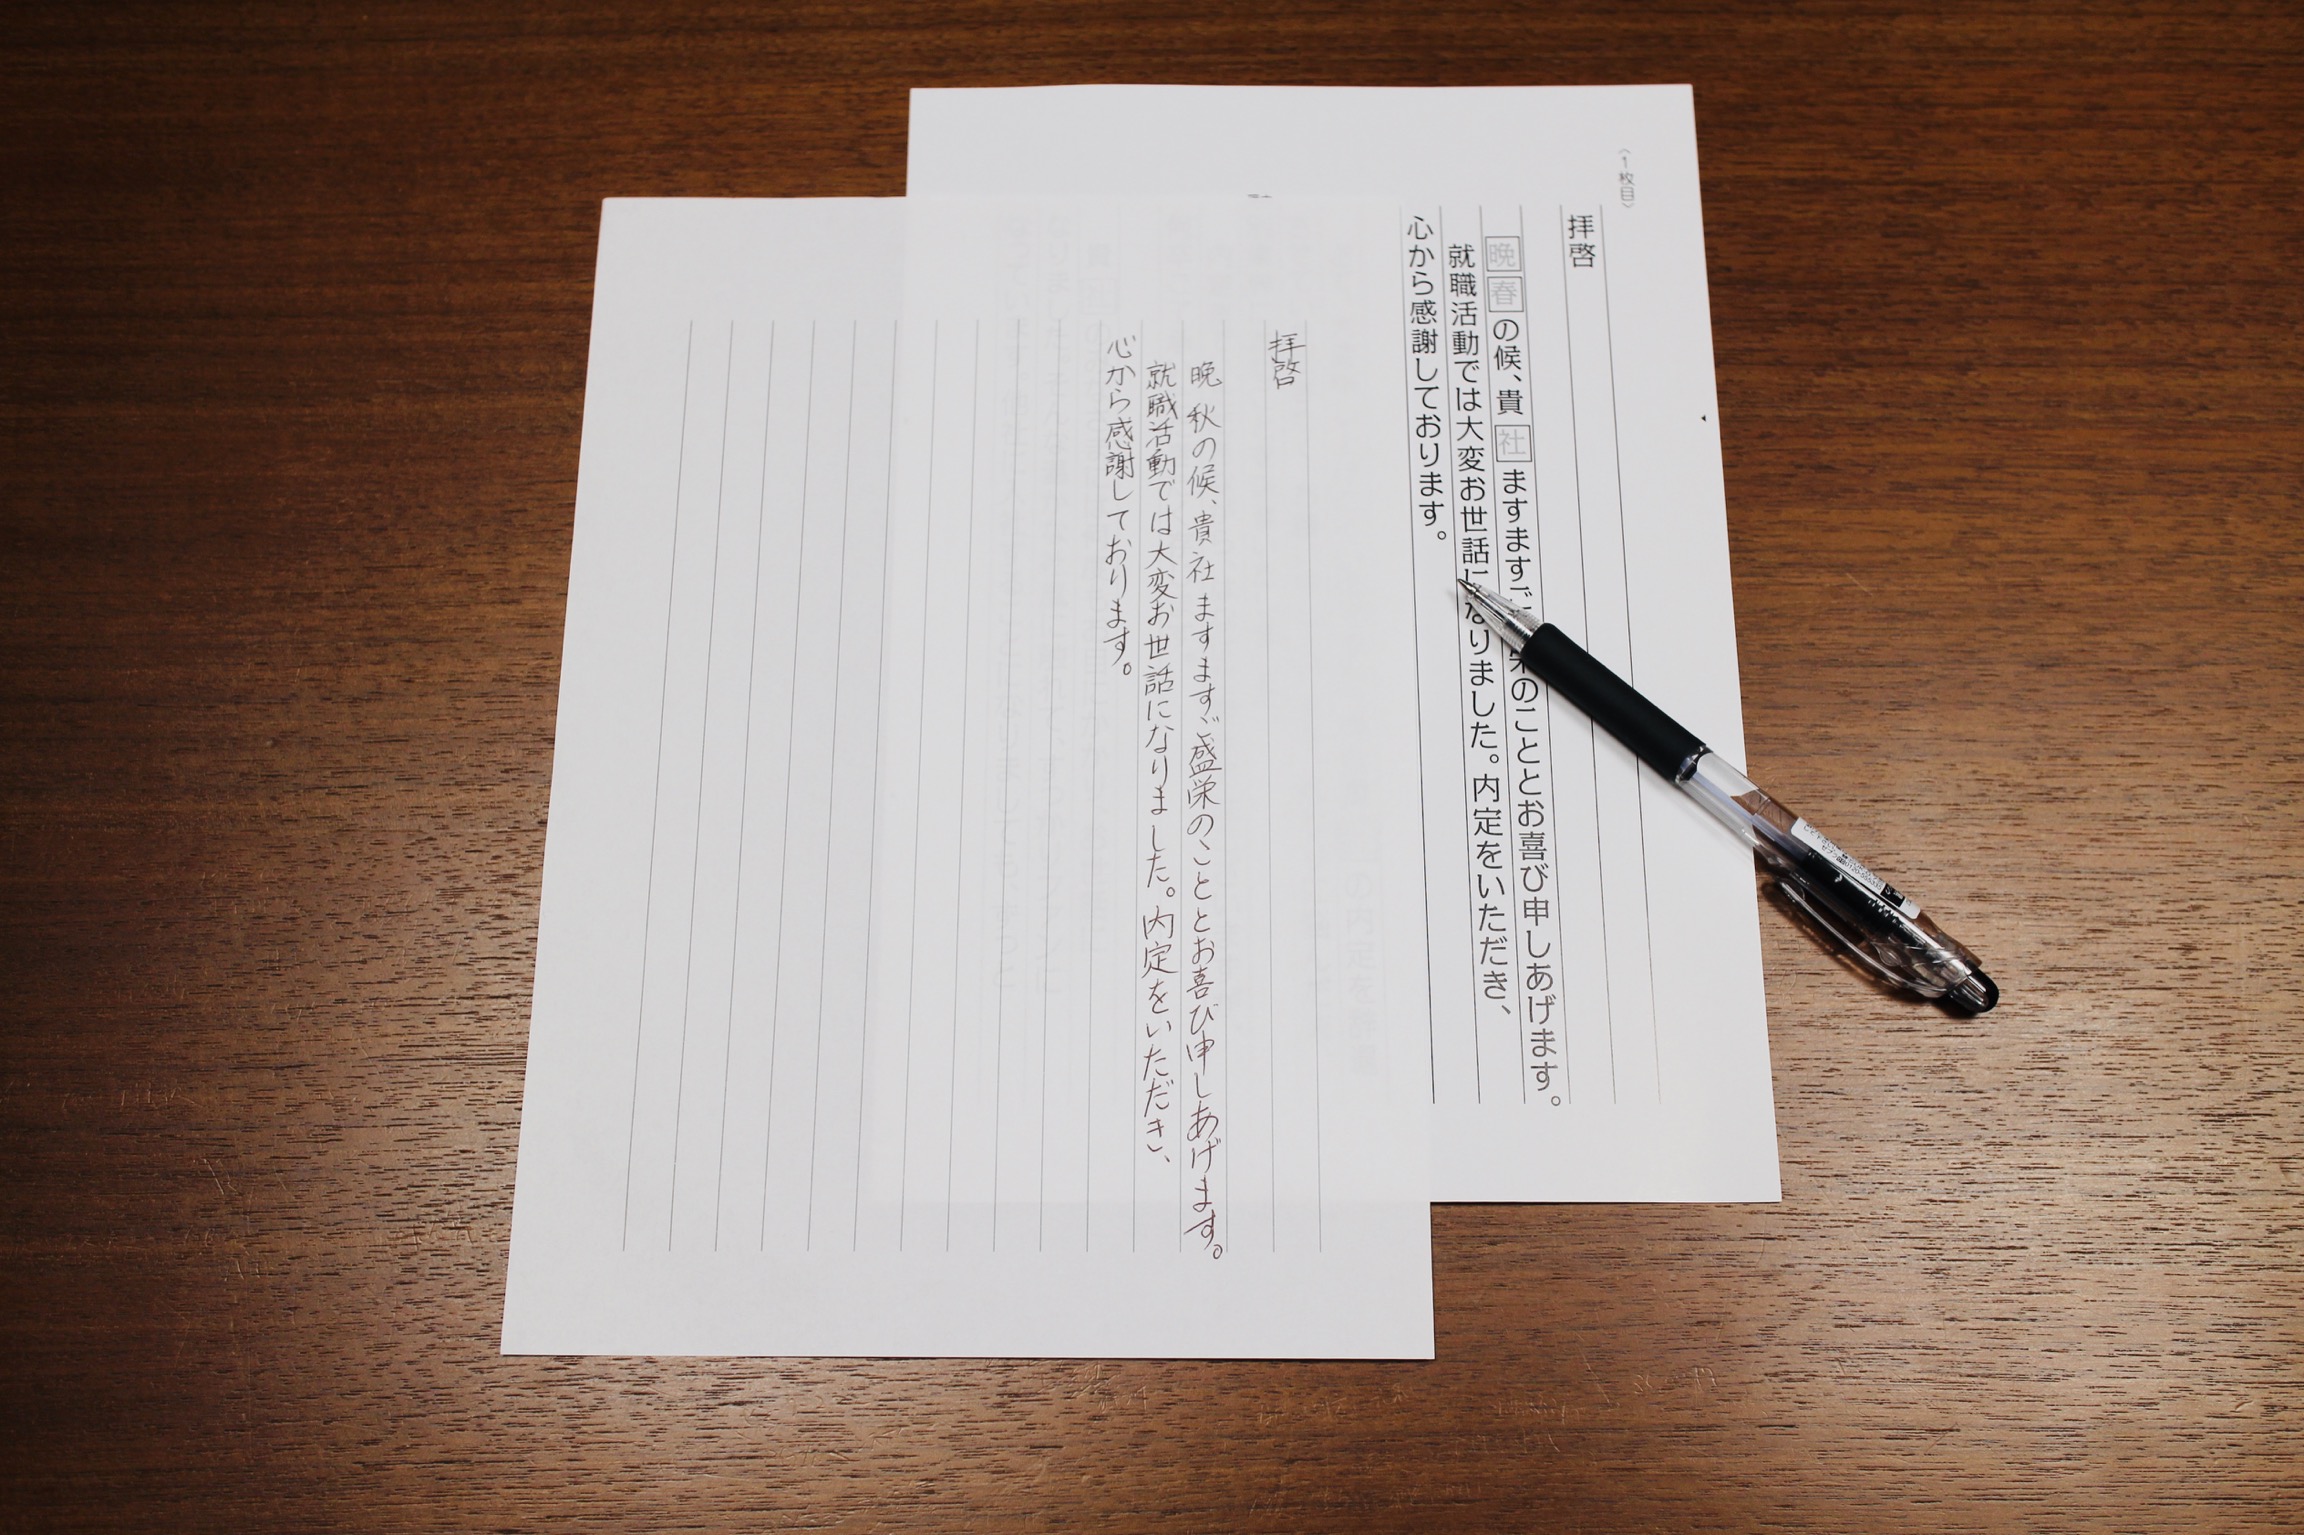 〈1枚目〉
拝啓
晩春の候、貴社ますますご栄のこととお喜び申しあげます。
就職活動では大変お世話になりました。内定をいただき、
心から感謝しております。
拝啓
晩秋の候、貴社ますますご盛栄のこととお喜び申しあげます。
就職活動では大変お世話になりました。内定をいただき、
心から感謝しております。